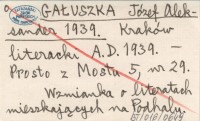 GAŁUSZKA Józef Alek-
sander 1939. Kraków
literacki A.D. 1939. —
Prosto z Mostu 5, nr 29.
Wzmianka o literatach
mieszkających na Podhalu.